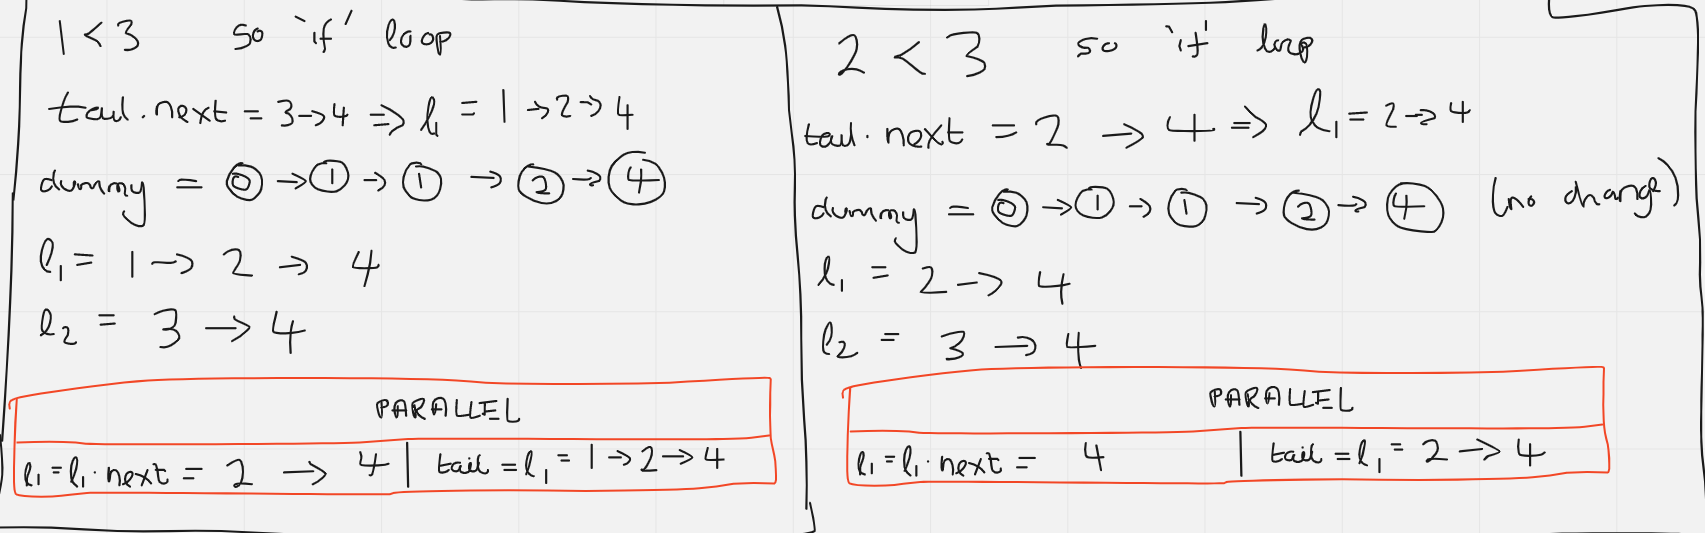 1 < 3 so 'if' loop
tail.next = 3→4 ⇒ l₁ = 1→2→4
dummy = 0 → 1 → 1 → 2 → 4
l₁ = 1 → 2 → 4
l₂ = 3 → 4
PARALLEL
l₁ = l₁.next = 2 → 4 | tail = l₁ = 1→2→4
2 < 3 so 'if' loop
tail.next = 2 → 4 ⇒ l₁ = 2→4
dummy = 0 → 1 → 1 → 2 → 4 (no change)
l₁ = 2 → 4
l₂ = 3 → 4
PARALLEL
l₁ = l₁.next = 4 | tail = l₁ = 2 → 4